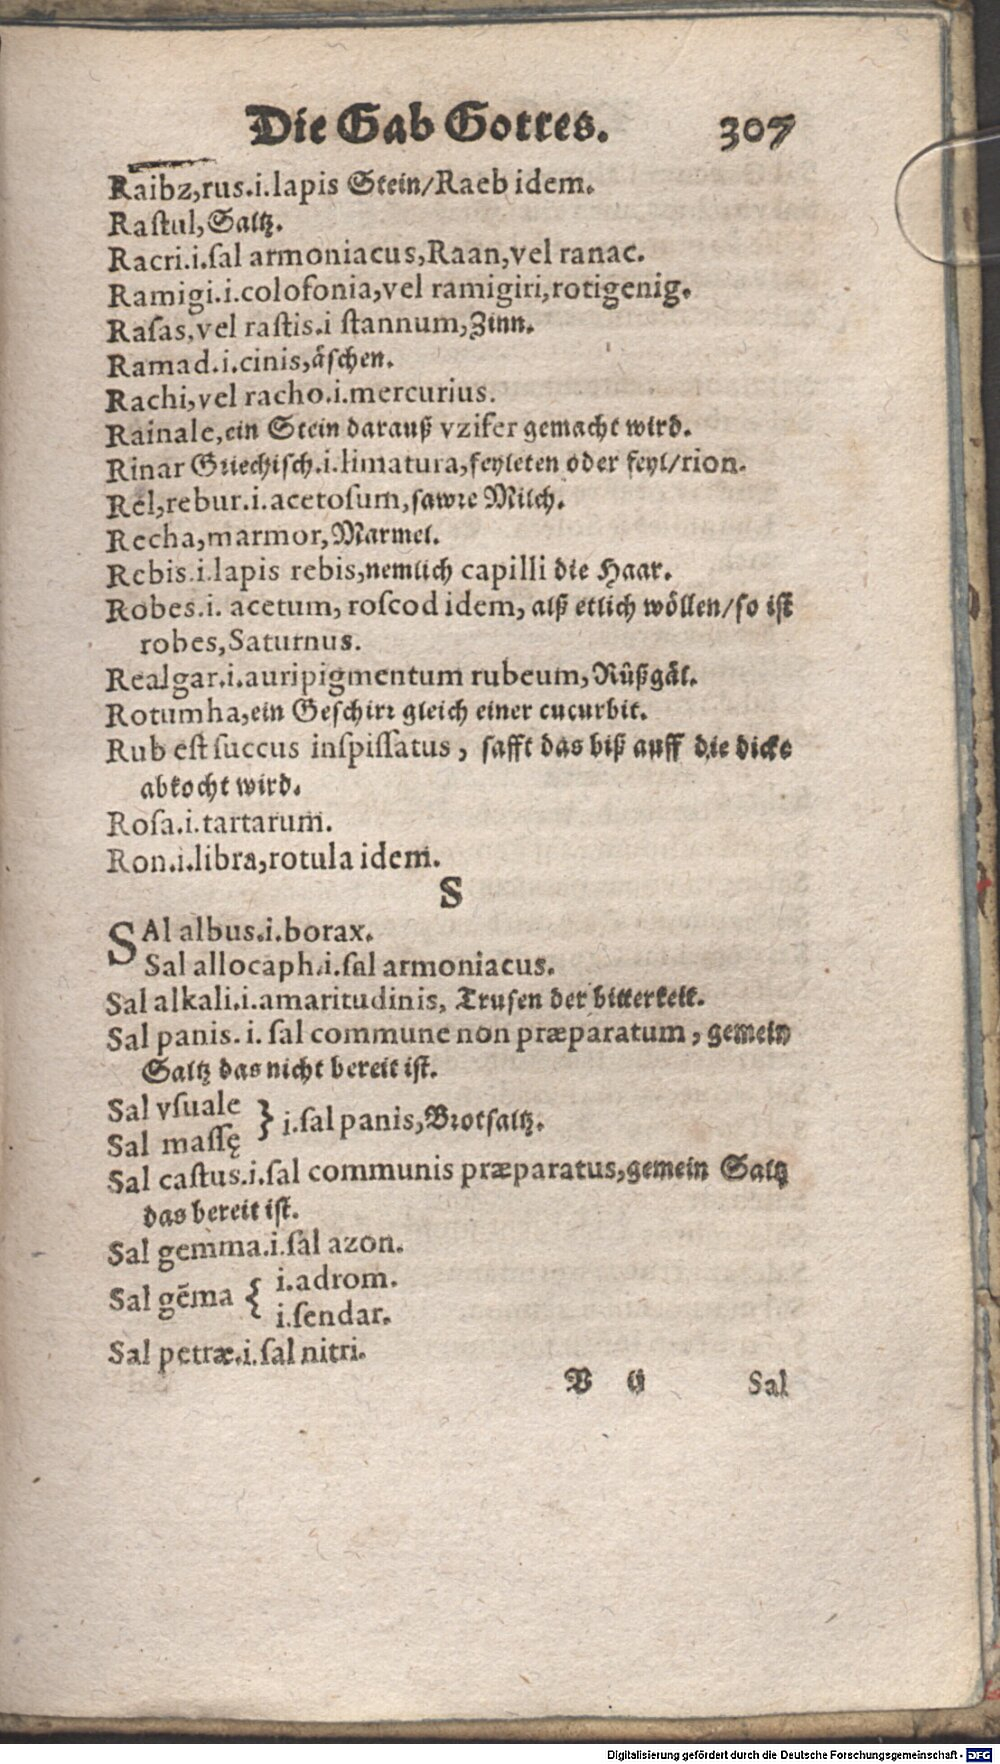 Die Gab Gottes. 307
Raibz,rus.i.lapis Stein/Raeb idem.
Raſtul,Saltz.
Racri.i.ſal armoniacus,Raan,vel ranac.
Ramigi.i.colofonia,vel ramigiri,rotigenig.
Raſas,vel raſtis.i ſtannum,Zinn.
Ramad.i.cinis,äſchen.
Rachi,vel racho.i.mercurius.
Rainale,ein Stein darauß vzifer gemacht wird.
Rinar Griechiſch.i.limatura,feyleten oder feyl/rion.
Rel,rebur.i.acetoſum,ſawre Milch.
Recha,marmor,Marmel.
Rebis.i.lapis rebis,nemlich capilli die Haar.
Robes.i. acetum, roſcod idem, alß etlich wöllen/ſo iſt
robes,Saturnus.
Realgar.i.auripigmentum rubeum,Růßgäl.
Rotumha,ein Geſchirr gleich einer cucurbit.
Rub eſt ſuccus inſpiſſatus, ſafft das biß auff die dicke
abkocht wird.
Roſa.i.tartarum.
Ron.i.libra,rotula idem.
S
SAl albus.i.borax.
Sal allocaph.i.ſal armoniacus.
Sal alkali.i.amaritudinis, Truſen der bitterkeit.
Sal panis.i.ſal commune non præparatum, gemein
Saltz das nicht bereit iſt.
Sal vſuale
Sal maſſę } i.ſal panis,Brotſaltz.
Sal caſtus.i.ſal communis præparatus,gemein Saltz
das bereit iſt.
Sal gemma.i.ſal azon.
Sal gẽma { i.adrom.
i.ſendar.
Sal petræ.i.ſal nitri.
V ij Sal
Digitalisierung gefördert durch die Deutsche Forschungsgemeinschaft - DFG